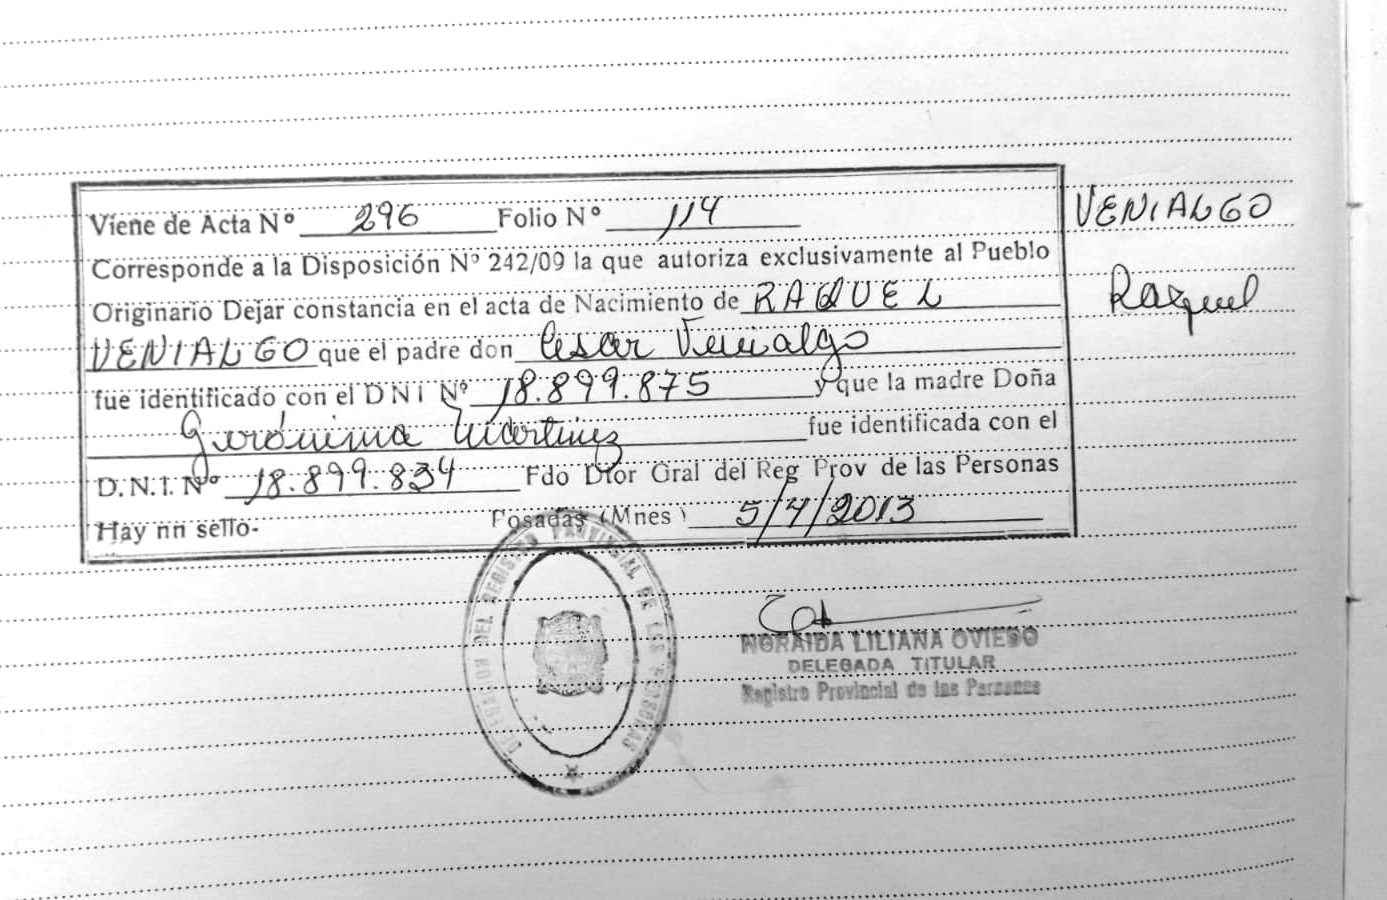 Viene de Acta Nº 296 Folio Nº 114
Corresponde a la Disposición Nº 242/09 la que autoriza exclusivamente al Pueblo
Originario Dejar constancia en el acta de Nacimiento de RAQUEL
VENIALGO que el padre don Cesar Venialgo
fue identificado con el DNI Nº 18.899.875 y que la madre Doña
Gerónima Martinez fue identificada con el
D.N.I. Nº 18.899.834 Fdo Dtor Gral del Reg Prov de las Personas
Hay nn sello- Posadas (Mnes) 5/4/2013
VENIALGO
Raquel
DELEGACION DEL REGISTRO PROVINCIAL DE LAS PERSONAS
NORAIDA LILIANA OVIEDO
DELEGADA TITULAR
Registro Provincial de las Personas